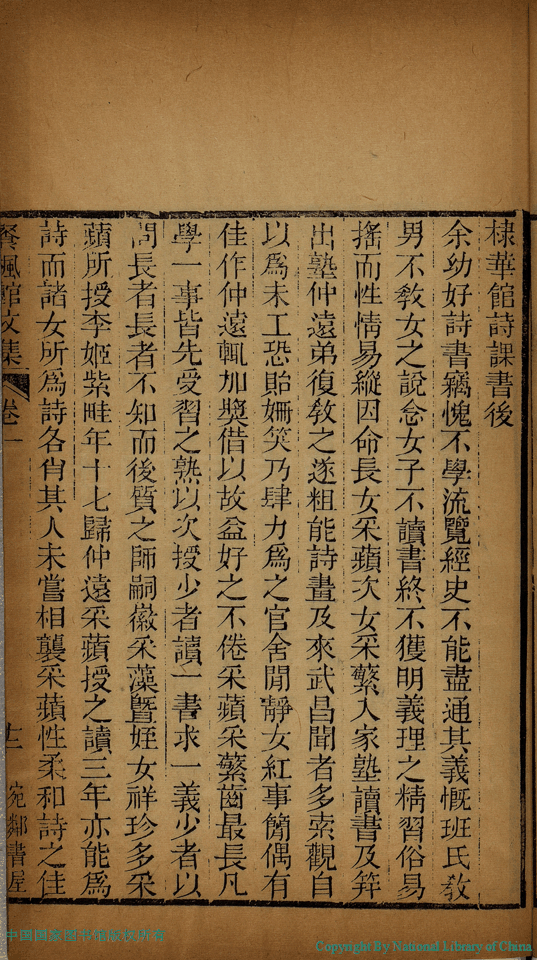 棣華館詩課書後
余幼好詩書竊愧不學流覽經史不能盡通其義慨班氏敎
男不敎女之說念女子不讀書終不獲明義理之精習俗易
搖而性情易縱因命長女采蘋次女采蘩入家塾讀書及笄
出塾仲遠弟復敎之遂粗能詩畫及來武昌聞者多索觀自
以爲未工恐貽姍笑乃肆力爲之官舍閒靜女紅事簡偶有
佳作仲遠輒加奬借以故益好之不倦采蘋采蘩齒最長凡
學一事皆先受習之熟以次授少者讀一書求一義少者以
問長者長者不知而後質之師嗣徽采藻曁姪女祥珍多采
蘋所授李姬紫畦年十七歸仲遠采蘋授之讀三年亦能爲
詩而諸女所爲詩各肖其人未嘗相襲采蘋性柔和詩之佳
餐楓館文集 卷一 十二 宛鄰書屋
中国国家图书馆版权所有
Copyright By National Library of China